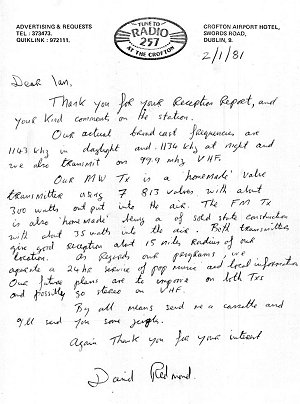 ADVERTISING & REQUESTS
TEL: 373473.
QUIKLINK: 972111.
TUNE TO
RADIO
257
AT THE CROFTON
CROFTON AIRPORT HOTEL,
SWORDS ROAD,
DUBLIN, 9.
2/1/81
Dear Ian,
Thank you for your Reception Report, and
your kind comments on the station.
Our actual broadcast frequencies are
1143 khz in daylight and 1134 khz at night and
we also transmit on 99.9 mhz VHF.
Our MW Tx is a 'homemade' valve
transmitter using 7 813 valves with about
300 watts out put into the air. The FM Tx
is also 'homemade' being a of solid state construction
with about 35 watts into the air. Both transmitters
give good reception about 15 miles radius of our
location. As regards our programs, we
operate a 24 hr service of pop music and local information
Our future plans are to improve on both Txs
and possibly go stereo on VHF.
By all means send me a cassette and
I'll send you some jingles.
Again Thank you for your interest
David Redmond.